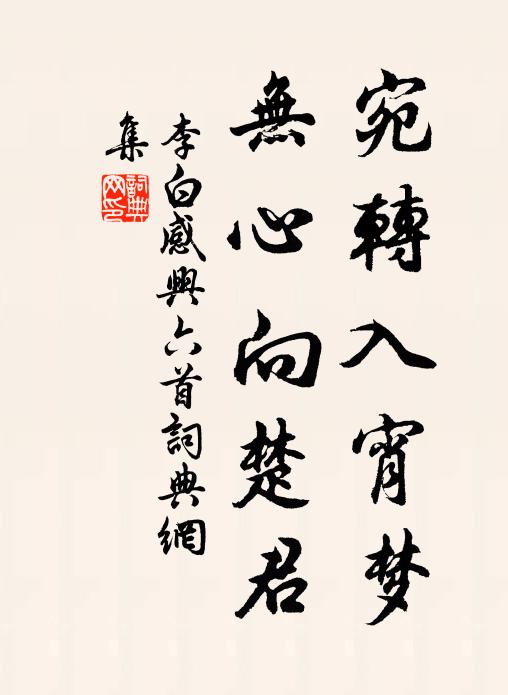 宛轉入宵梦
無心向楚君
李白感興六首詞典網
集
詞典
网印